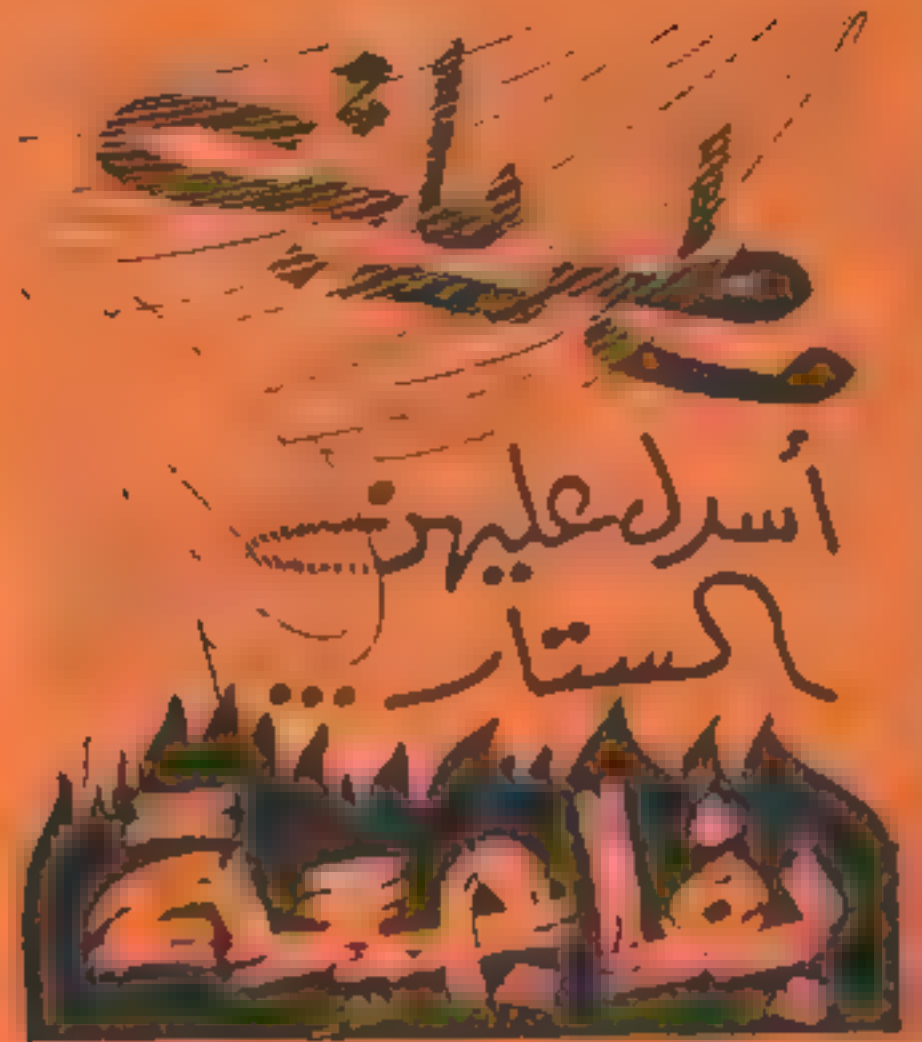 مطربات
أسدل عليهن
الستار...